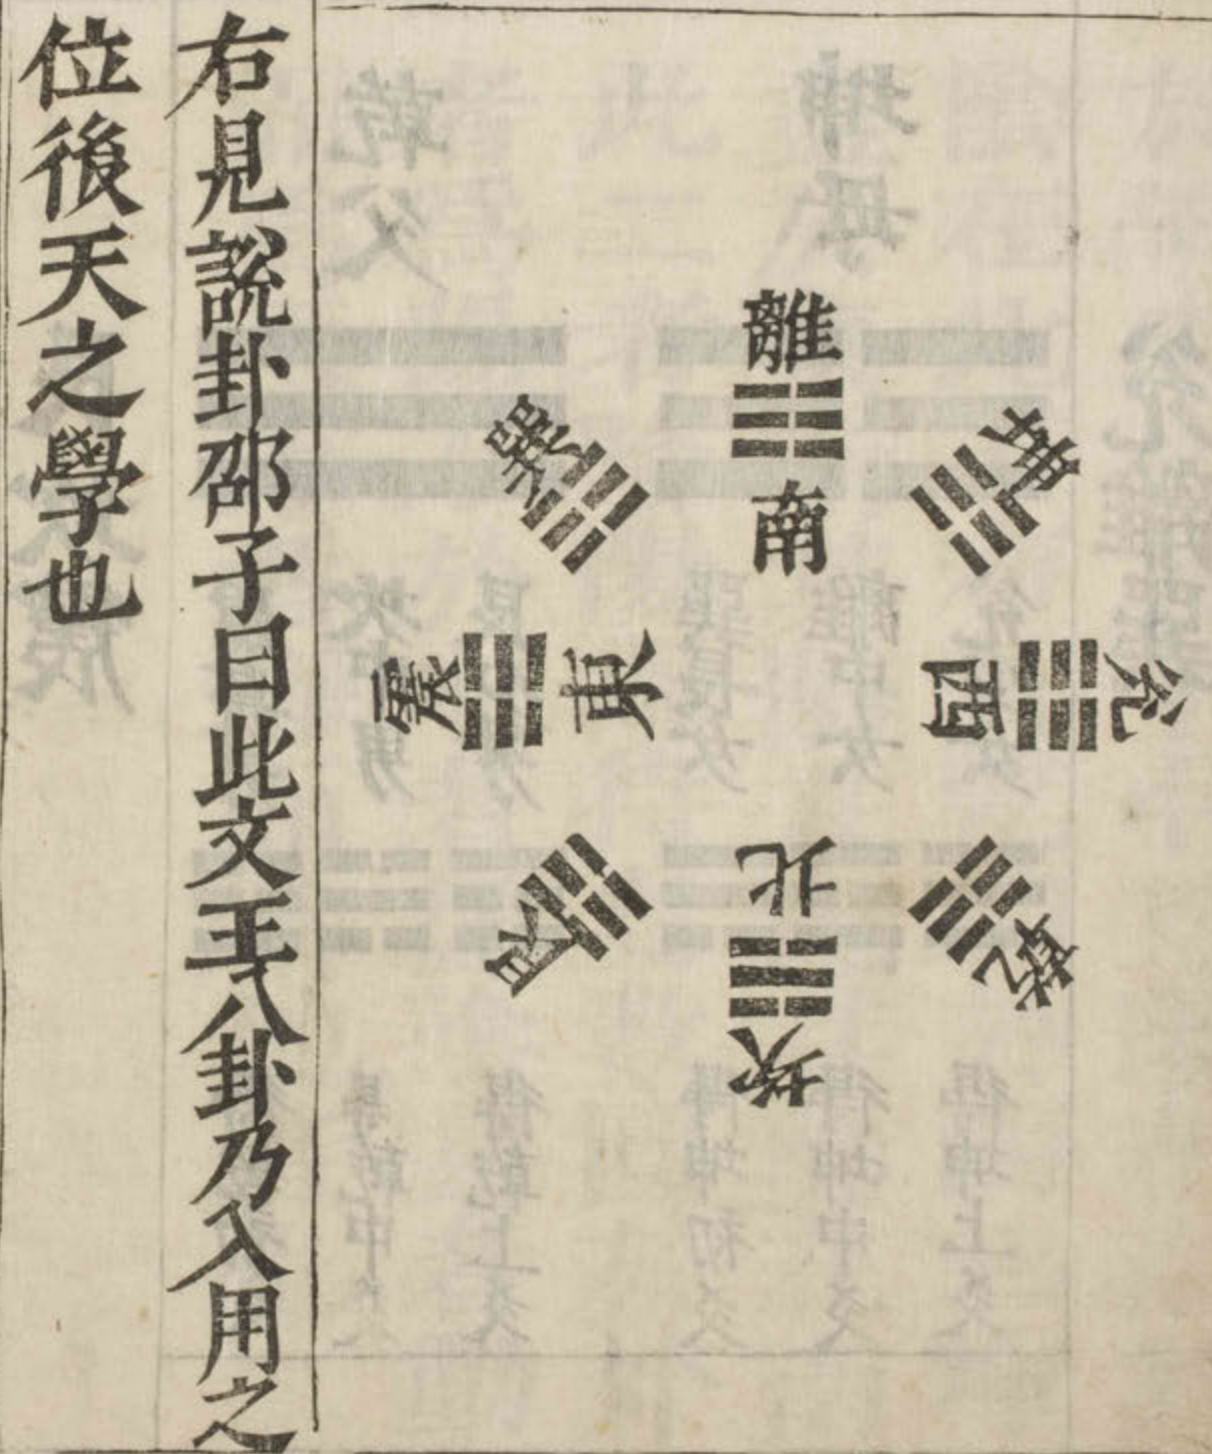 離
南
坤
兌
西
乾
北
坎
艮
震
東
巽
右見說卦邵子曰此文王八卦乃入用之
位後天之學也